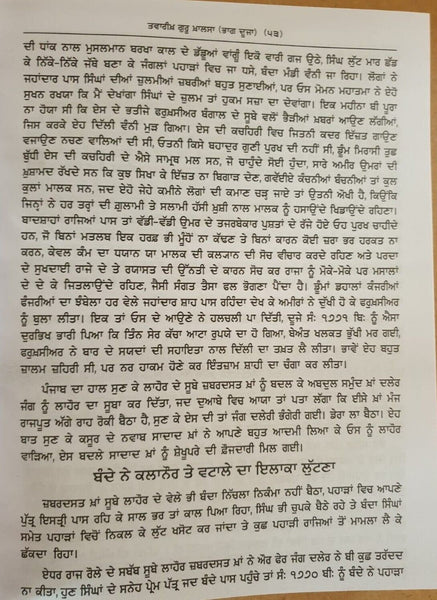 ਤਵਾਰੀਖ਼ ਗੁਰੂ ਖ਼ਾਲਸਾ (ਭਾਗ ਦੂਜਾ) (੫੩)
ਦੀ ਧਾਂਕ ਨਾਲ ਮੁਸਲਮਾਨ ਬਰਖਾ ਕਾਲ ਦੇ ਡੱਡੂਆਂ ਵਾਂਗੂੰ ਇਕੋ ਵਾਰੀ ਗਜ ਉਠੇ, ਸਿੰਘ ਲੁੱਟ ਮਾਰ ਛੱਡ
ਕੇ ਨਿੱਕੇ-ਨਿੱਕੇ ਜੱਥੇ ਬਣਾ ਕੇ ਜੰਗਲਾਂ ਪਹਾੜਾਂ ਵਿਚ ਜਾ ਧਸੇ, ਬੰਦਾ ਮੰਡੀ ਵੰਨੀ ਜਾ ਰਿਹਾ। ਲੋਗਾਂ ਨੇ
ਜਹਾਂਦਾਰ ਪਾਸ ਸਿੰਘਾਂ ਦੀਆਂ ਜ਼ੁਲਮੀਆਂ ਜ਼ਬਰੀਆਂ ਬਹੁਤ ਸੁਣਾਈਆਂ, ਪਰ ਓਸ ਮੋਮਨ ਮਹਾਤਮਾ ਨੇ ਏਹੋ
ਸੁਖਨ ਰਖਯਾ ਕਿ ਮੈਂ ਦੇਖਾਂਗਾ ਸਿੰਘਾਂ ਦੇ ਜ਼ੁਲਮ ਤਾਂ ਹੁਕਮ ਸਜ਼ਾ ਦਾ ਦੇਵਾਂਗਾ। ਇਕ ਮਹੀਨਾ ਬੀ ਪੂਰਾ
ਨਾ ਹੋਯਾ ਸੀ ਕਿ ਏਸ ਦੇ ਭਤੀਜੇ ਫਰੁਖ਼ਸੀਅਰ ਬੰਗਾਲ ਦੇ ਸੂਬੇ ਵਲੋਂ ਭੈੜੀਆਂ ਖ਼ਬਰਾਂ ਆਉਣ ਲੱਗੀਆਂ,
ਜਿਸ ਕਰਕੇ ਏਹ ਦਿੱਲੀ ਵੰਨੀ ਮੁੜ ਗਿਆ। ਏਸ ਦੀ ਕਚਹਿਰੀ ਵਿਚ ਜਿਤਨੀ ਕਦਰ ਇੱਜ਼ਤ ਗਾਉਣ
ਵਜਾਉਣ ਨਚਣ ਵਾਲਿਆਂ ਦੀ ਸੀ, ਓਤਨੀ ਕਿਸੇ ਬਹਾਦੁਰ ਗੁਣੀ ਪੁਰਖ ਦੀ ਨਹੀਂ ਸੀ, ਡੂੰਮ ਮਿਰਾਸੀ ਤੁਛ
ਬੁੱਧੀ ਇਸ ਦੀ ਕਚਹਿਰੀ ਦੇ ਐਸੇ ਸਾਮ੍ਰਥ ਮਲ ਸਨ, ਜੋ ਚਾਹੁੰਦੇ ਸੋਈ ਹੁੰਦਾ, ਸਾਰੇ ਅਮੀਰ ਉਮਰਾਂ ਦੀ
ਖ਼ੁਸ਼ਾਮਦ ਰੱਖਦੇ ਸਨ ਕਿ ਕੁਛ ਸਿਖਾ ਕੇ ਇੱਜ਼ਤ ਨਾ ਬਿਗਾੜ ਦੇਣ, ਗਵੱਈਏ ਕੰਚਨੀਆਂ ਬੰਚਨੀਆਂ ਤਾਂ ਕੁਲ
ਕੁਲਾਂ ਮਾਲਕ ਸਨ, ਜਦ ਏਹੋ ਜੇਹੇ ਕਮੀਨੇ ਲੋਗਾਂ ਦੀ ਕਮਾਣ ਚੜ੍ਹ ਜਾਏ ਤਾਂ ਉਤਨੀ ਔਖੀ ਹੈ, ਕਿਉਂਕਿ
ਜਿਨ੍ਹਾਂ ਨੇ ਹਰ ਤਰ੍ਹਾਂ ਦੀ ਗ਼ੁਲਾਮੀ ਤੇ ਸਲਾਮੀ ਹੱਸੀ ਖ਼ੁਸ਼ੀ ਨਾਲ ਮਾਲਕ ਨੂੰ ਹਸਾਉਂਦੇ ਖਿਡਾਉਂਦੇ ਰਹਿਣਾ।
ਬਾਦਸ਼ਾਹਾਂ ਰਾਜਿਆਂ ਪਾਸ ਤਾਂ ਵੱਡੀ-ਵੱਡੀ ਉਮਰ ਦੇ ਤਜਰਬੇਕਾਰ ਪੁਸ਼ਤਾਂ ਦੇ ਰੱਜੇ ਹੋਏ ਓਹ ਪੁਰਖ ਚਾਹੀਦੇ
ਹਨ, ਜੋ ਬਿਨਾਂ ਮਤਲਬ ਇਕ ਹਰਫ਼ ਭੀ ਮੂੰਹੋਂ ਨਾ ਕੱਢਣ ਤੇ ਬਿਨਾਂ ਕਾਰਨ ਕੋਈ ਜ਼ਰਾ ਭਰ ਹਰਕਤ ਨਾ
ਕਰਨ, ਕੇਵਲ ਕੰਮ ਦਾ ਧਯਾਨ ਯਾ ਮਾਲਕ ਦੀ ਕਲਯਾਨ ਦੀ ਸੋਚ ਵੀਚਾਰ ਕਰਦੇ ਰਹਿਣ ਅਤੇ ਪਰਦਾ
ਦੇ ਸੁਖਦਾਈ ਰਾਜੇ ਦੇ ਤੇ ਰਯਾਸਤ ਦੀ ਉੱਨਤੀ ਦੇ ਕਾਰਨ ਸੋਚ ਕਰ ਰਾਜਾ ਨੂੰ ਮੌਕੇ-ਮੌਕੇ ਪਰ ਮਸਾਲਾਂ
ਦੇ ਦੇ ਕੇ ਜਿਤਲਾਉਂਦੇ ਰਹਿਣ, ਜੈਸੀ ਸੰਗਤ ਤੈਸਾ ਫਲ ਭੋਗਣਾ ਪੈਂਦਾ ਹੈ। ਡੂੰਮਾਂ ਡਹਾਲਾਂ ਕੰਜਰੀਆਂ
ਫੰਜਰੀਆਂ ਦਾ ਝੰਬੇਲਾ ਹਰ ਵੇਲੇ ਜਹਾਂਦਾਰ ਸ਼ਾਹ ਪਾਸ ਰਹਿੰਦਾ ਦੇਖ ਕੇ ਅਮੀਰਾਂ ਨੇ ਦੁੱਖੀ ਹੋ ਕੇ ਫਰੁਖ਼ਸੀਅਰ
ਨੂੰ ਬੁਲਾ ਲੀਤਾ। ਇਕ ਤਾਂ ਓਸ ਦੇ ਆਉਣੇ ਨੇ ਹਲਚਲੀ ਪਾ ਦਿੱਤੀ, ਦੂਜੇ ਸੰ: ੧੭੭੧ ਬਿ: ਨੂੰ ਐਸਾ
ਦੁਰਭਿਖ ਭਾਰੀ ਪਿਆ ਕਿ ਤਿੰਨ ਸੇਰ ਕੱਚਾ ਆਟਾ ਰੁਪਯੇ ਦਾ ਹੋ ਗਿਆ, ਬੇਅੰਤ ਖਲਕਤ ਭੁੱਖੀ ਮਰ ਗਈ,
ਫਰੁਖ਼ਸੀਅਰ ਨੇ ਬਾਰ ਦੇ ਸਯਦਾਂ ਦੀ ਸਹਾਇਤਾ ਨਾਲ ਦਿੱਲੀ ਦਾ ਤਖ਼ਤ ਲੈ ਲੀਤਾ। ਭਾਵੇਂ ਏਹ ਬਹੁਤ
ਜ਼ਾਲਮ ਜ਼ਹਿਰੀ ਸੀ, ਪਰ ਨਰ ਹਾਕਮ ਹੋਣੇ ਕਰ ਇੰਤਜ਼ਾਮ ਸ਼ਾਹੀ ਦਾ ਚੰਗਾ ਕਰ ਲੀਤਾ।
ਪੰਜਾਬ ਦਾ ਹਾਲ ਸੁਣ ਕੇ ਲਾਹੌਰ ਦੇ ਸੂਬੇ ਜ਼ਬਰਦਸਤ ਖ਼ਾਂ ਨੂੰ ਬਦਲ ਕੇ ਅਬਦੁਲ ਸਮੁੰਦ ਖ਼ਾਂ ਦਲੇਰ
ਜੰਗ ਨੂੰ ਲਾਹੌਰ ਦਾ ਸੂਬਾ ਕਰ ਦਿੱਤਾ, ਜਦ ਦੁਆਬੇ ਵਿਚ ਆਯਾ ਤਾਂ ਪਤਾ ਲੱਗਾ ਕਿ ਈਸੇ ਖ਼ਾਂ ਮੰਜ
ਰਾਜਪੂਤ ਅੱਗੇ ਰਾਹ ਰੋਕੀ ਬੈਠਾ ਹੈ, ਸੁਣ ਕੇ ਏਸ ਦੀ ਤਾਂ ਜੰਗ ਦਲੇਰੀ ਭੰਗੇਰੀ ਗਈ। ਡੇਰਾ ਲਾ ਬੈਠਾ। ਏਹ
ਬਾਤ ਸੁਣ ਕੇ ਕਸੂਰ ਦੇ ਨਵਾਬ ਸਾਦਾਦ ਖ਼ਾਂ ਨੇ ਆਪਣੇ ਬਹੁਤ ਆਦਮੀ ਲਿਆ ਕੇ ਓਸ ਨੂੰ ਲਾਹੌਰ
ਵਾੜਿਆ, ਏਸ ਬਦਲੇ ਸਾਦਾਦ ਖ਼ਾਂ ਨੂੰ ਸ਼ੇਖ਼ੂਪਰੇ ਦੀ ਫ਼ੌਜਦਾਰੀ ਮਿਲ ਗਈ।
ਬੰਦੇ ਨੇ ਕਲਾਨੌਰ ਤੇ ਵਟਾਲੇ ਦਾ ਇਲਾਕਾ ਲੁੱਟਣਾ
ਜ਼ਬਰਦਸਤ ਖ਼ਾਂ ਸੂਬੇ ਲਾਹੌਰ ਦੇ ਵੇਲੇ ਭੀ ਬੰਦਾ ਨਿੱਚਲਾ ਨਿਕੰਮਾ ਨਹੀਂ ਬੈਠਾ, ਪਹਾੜਾਂ ਵਿਚ ਆਪਣੇ
ਪੁੱਤ੍ਰ ਇਸਤਰੀ ਪਾਸ ਰਹਿ ਕੇ ਸਾਲ ਭਰ ਤਾਂ ਕਾਲ ਪਿਆ ਰਿਹਾ, ਸਿੰਘ ਭੀ ਚੁਪਕੇ ਬੈਠੇ ਰਹੇ ਤੇ ਬੰਦਾ ਸਿੰਘਾਂ
ਸਮੇਤ ਪਹਾੜਾਂ ਵਿਚੋਂ ਨਿਕਲ ਕੇ ਲੁੱਟ ਖਸੋਟ ਕਰ ਜਾਂਦਾ ਤੇ ਕੁਛ ਪਹਾੜੀ ਰਾਜਿਆਂ ਤੋਂ ਮਾਮਲਾ ਲੈ ਕੇ
ਛੱਕਦਾ ਰਿਹਾ।
ਏਧਰ ਰਾਜ ਰੌਲੇ ਦੇ ਸਬੱਬ ਸੂਬੇ ਲਾਹੌਰ ਜ਼ਬਰਦਸਤ ਖ਼ਾਂ ਨੇ ਔਰ ਫੇਰ ਜੰਗ ਦਲੇਰ ਨੇ ਬੀ ਕੁਛ ਤਰੱਦਦ
ਨਾ ਕੀਤਾ, ਹੁਣ ਸਿੰਘਾਂ ਦੇ ਸਨੇਹ ਪ੍ਰੇਮ ਪੱਤ੍ਰ ਜਦ ਬੰਦੇ ਪਾਸ ਪਹੁੰਚੇ ਤਾਂ ਸੰ: ੧੭੭੦ ਬਿ: ਨੂੰ ਬੰਦੇ ਨੇ ਪਹਾੜਾਂ